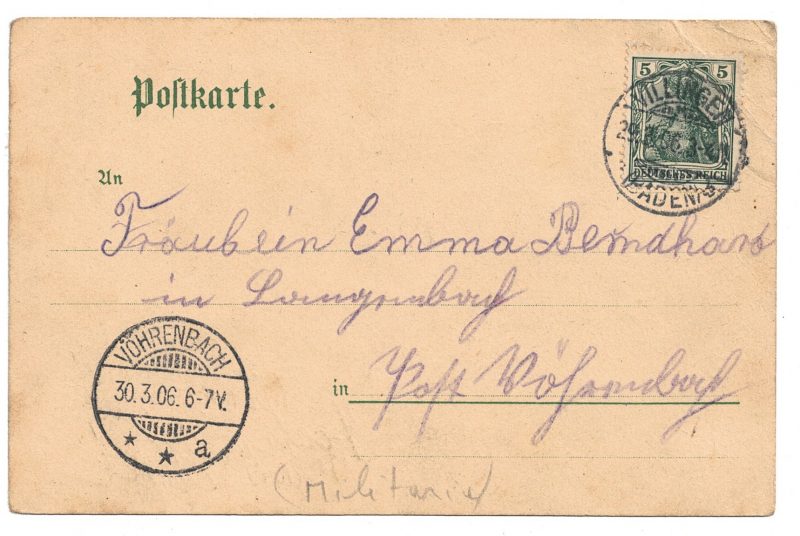 Postkarte.
5 5
DEUTSCHES REICH
VILLINGEN
(BADEN)
An
Fräulein Emma Berndhard
in Langenbach
in Post Vöhrenbach
VÖHRENBACH
30.3.06. 6-7V.
* * a
(Militaria)